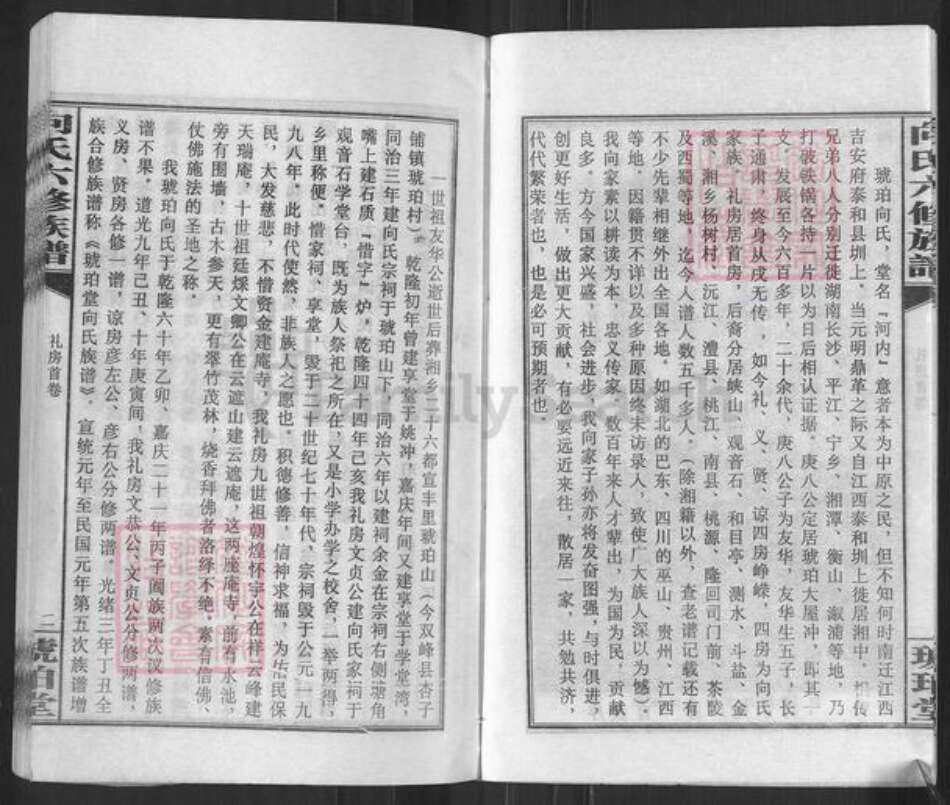 向氏六修族谱
琥珀堂
琥珀向氏，堂名『河内』意者本为中原之民，但不知何时南迁江西
吉安府泰和县圳上。当元明鼎革之际又自江西泰和圳上徙居湘中。相传
兄弟八人分别迁徙湖南长沙、平江、宁乡、湘潭、衡山、溆浦等地，乃
打破铁锅各持一片以为日后相认证据。庚八公定居琥珀大屋冲，即其一
支。发展至今六百多年，二十余代，庚八公子为友华，友华生五子，长
子通甫，终身从戎无传，如今礼、义、贤、谅四房峥嵘，四房为向氏
家族。礼房居首房，后裔分居峡山、观音石、和目亭、测水、斗盐、金
溪，湘乡杨树村，沅江、澧县、桃江、南县、桃源、隆回司门前、茶陵
及西蜀等地，迄今人谱人数五千多人。（除湘籍以外，查老谱记载还有
不少先辈相继外出全国各地。如湖北的巴东、四川的巫山、贵州、江西
等地，因籍贯不详以及多种原因终未访录入，致使广大族人深以为憾）。
我向家素以耕读为本，忠义传家，数百年来人才辈出，为国为民，贡献
良多。方今国家兴盛，社会进步，我向家子孙亦将发奋图强，与时俱进，
创更好生活，做出更大贡献，有必要远近来往，散居一家，共勉共济，
代代繁荣者也，也是必可预期者也。
一世祖友华公逝世后葬湘乡二十六都宣丰里琥珀山（今双峰县杏子
铺镇琥珀村）。乾隆初年曾建享堂于姚冲，嘉庆年间又建享堂于学堂湾，
同治三年建向氏宗祠于琥珀山下，同治六年以建祠余金在宗祠右侧塘角
嘴上建石质『惜字』炉，乾隆四十四年己亥我礼房文贞公建向氏家祠于
观音石学堂台，既为族人祭祀之所在，又是小学办学之校舍，一举两得，
乡里称便。惜家祠、享堂，毁于二十世纪七十年代、宗祠毁于公元一九
九八年。此时代使然，非族人之愿也。积德修善，信神求福，为农民保
民，大发慈悲，不惜资金建庵寺。我礼房九世祖朝煌怀宇公在祥云峰建
天瑞庵，十世祖廷煣文卿公在云遮山建云遮庵，这两座庵寺，前有水池，
旁有围墙，古木参天，更有翠竹茂林，烧香拜佛者洛绎不绝，素有信佛、
仗佛施法的圣地之称。
我琥珀向氏于乾隆六十年乙卯、嘉庆二十一年丙子阖族两次议修族
谱不果。道光九年己丑、十年庚寅间，我礼房文恭公、文贞公分修两谱，
义房、贤房各修一谱，谅房彦左公、彦右公分修两谱。光绪三年丁丑全
族合修族谱称《琥珀堂向氏族谱》。宣统元年至民国元年第五次族谱增
向氏六修族谱
礼房首卷
二
琥珀堂